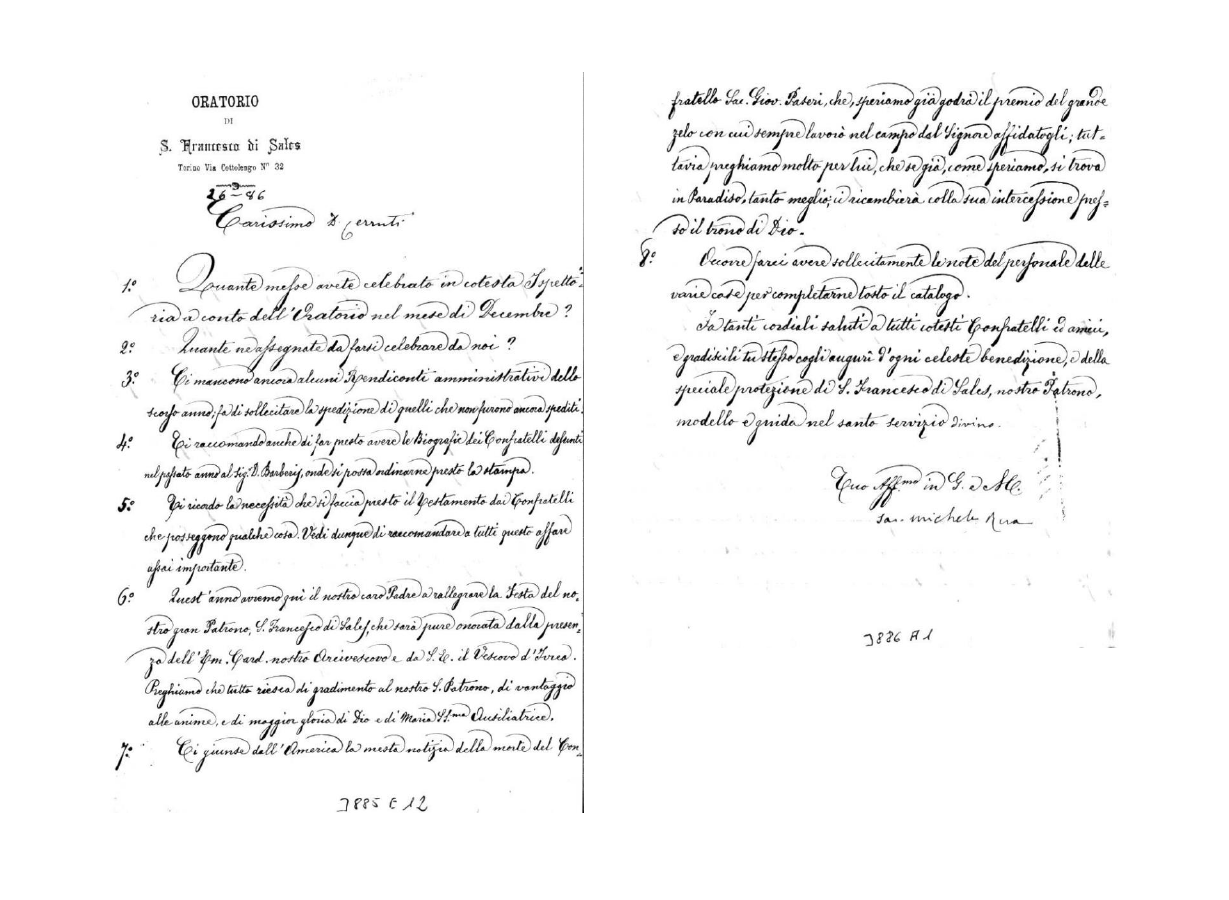 ORATORIO
DI
S. Francesco di Sales
Torino Via Cottolengo N° 32
26 - 86
Carissimo D Cerruti
1.° Quante messe avete celebrato in cotesta Ispetto-
ria a conto dell'Oratorio nel mese di Decembre?
2.° Quante ne assegnate da farsi celebrare da noi?
3.° Ci mancono ancora alcuni Rendiconti amministrativi dello
scorso anno; fa di sollecitare la spedizione di quelli che non furono ancora spediti.
4.° Ti raccomando anche di far presto avere le Biografie dei Confratelli defunti
nel passato anno al Sig. D. Barberis, onde si possa ordinarne presto la stampa.
5.° Ti ricordo la necessità che si faccia presto il Testamento dai Confratelli
che posseggono qualche cosa. Vedi dunque di raccomandare a tutti questo affare
assai importante.
6.° Quest'anno avremo qui il nostro caro Padre a rallegrare la Festa del no-
stro gran Patrono, S. Francesco di Sales, che sarà pure onorata dalla presen-
za dell'Em. Card. nostro Arcivescovo e da S. E. il Vescovo d'Ivrea.
Preghiamo che tutto riesca di gradimento al nostro S. Patrono, di vantaggio
alle anime, e di maggior gloria di Dio e di Maria SS.ma Ausiliatrice.
7.° Ci giunse dall'America la mesta notizia della morte del Con-
3885 E 12
fratello Sac. Giov. Paseri, che, speriamo già godrà il premio del grande
zelo con cui sempre lavorò nel campo dal Signore affidatogli; tut-
tavia preghiamo molto per lui, che se già, come speriamo, si trova
in Paradiso, tanto meglio; ci ricambierà colla sua intercessione pres-
so il trono di Dio.
8.° Occorre farci avere sollecitamente le note del personale delle
varie case per completarne tosto il catalogo.
Fa tanti cordiali saluti a tutti cotesti Confratelli ed amici,
e gradiscili tu stesso cogli augurì d'ogni celeste benedizione, e della
speciale protezione di S. Francesco di Sales, nostro Patrono,
modello e guida nel santo servizio divino.
Tuo Aff.mo in G. e M.
Sac. Michele Rua
3886 A 1